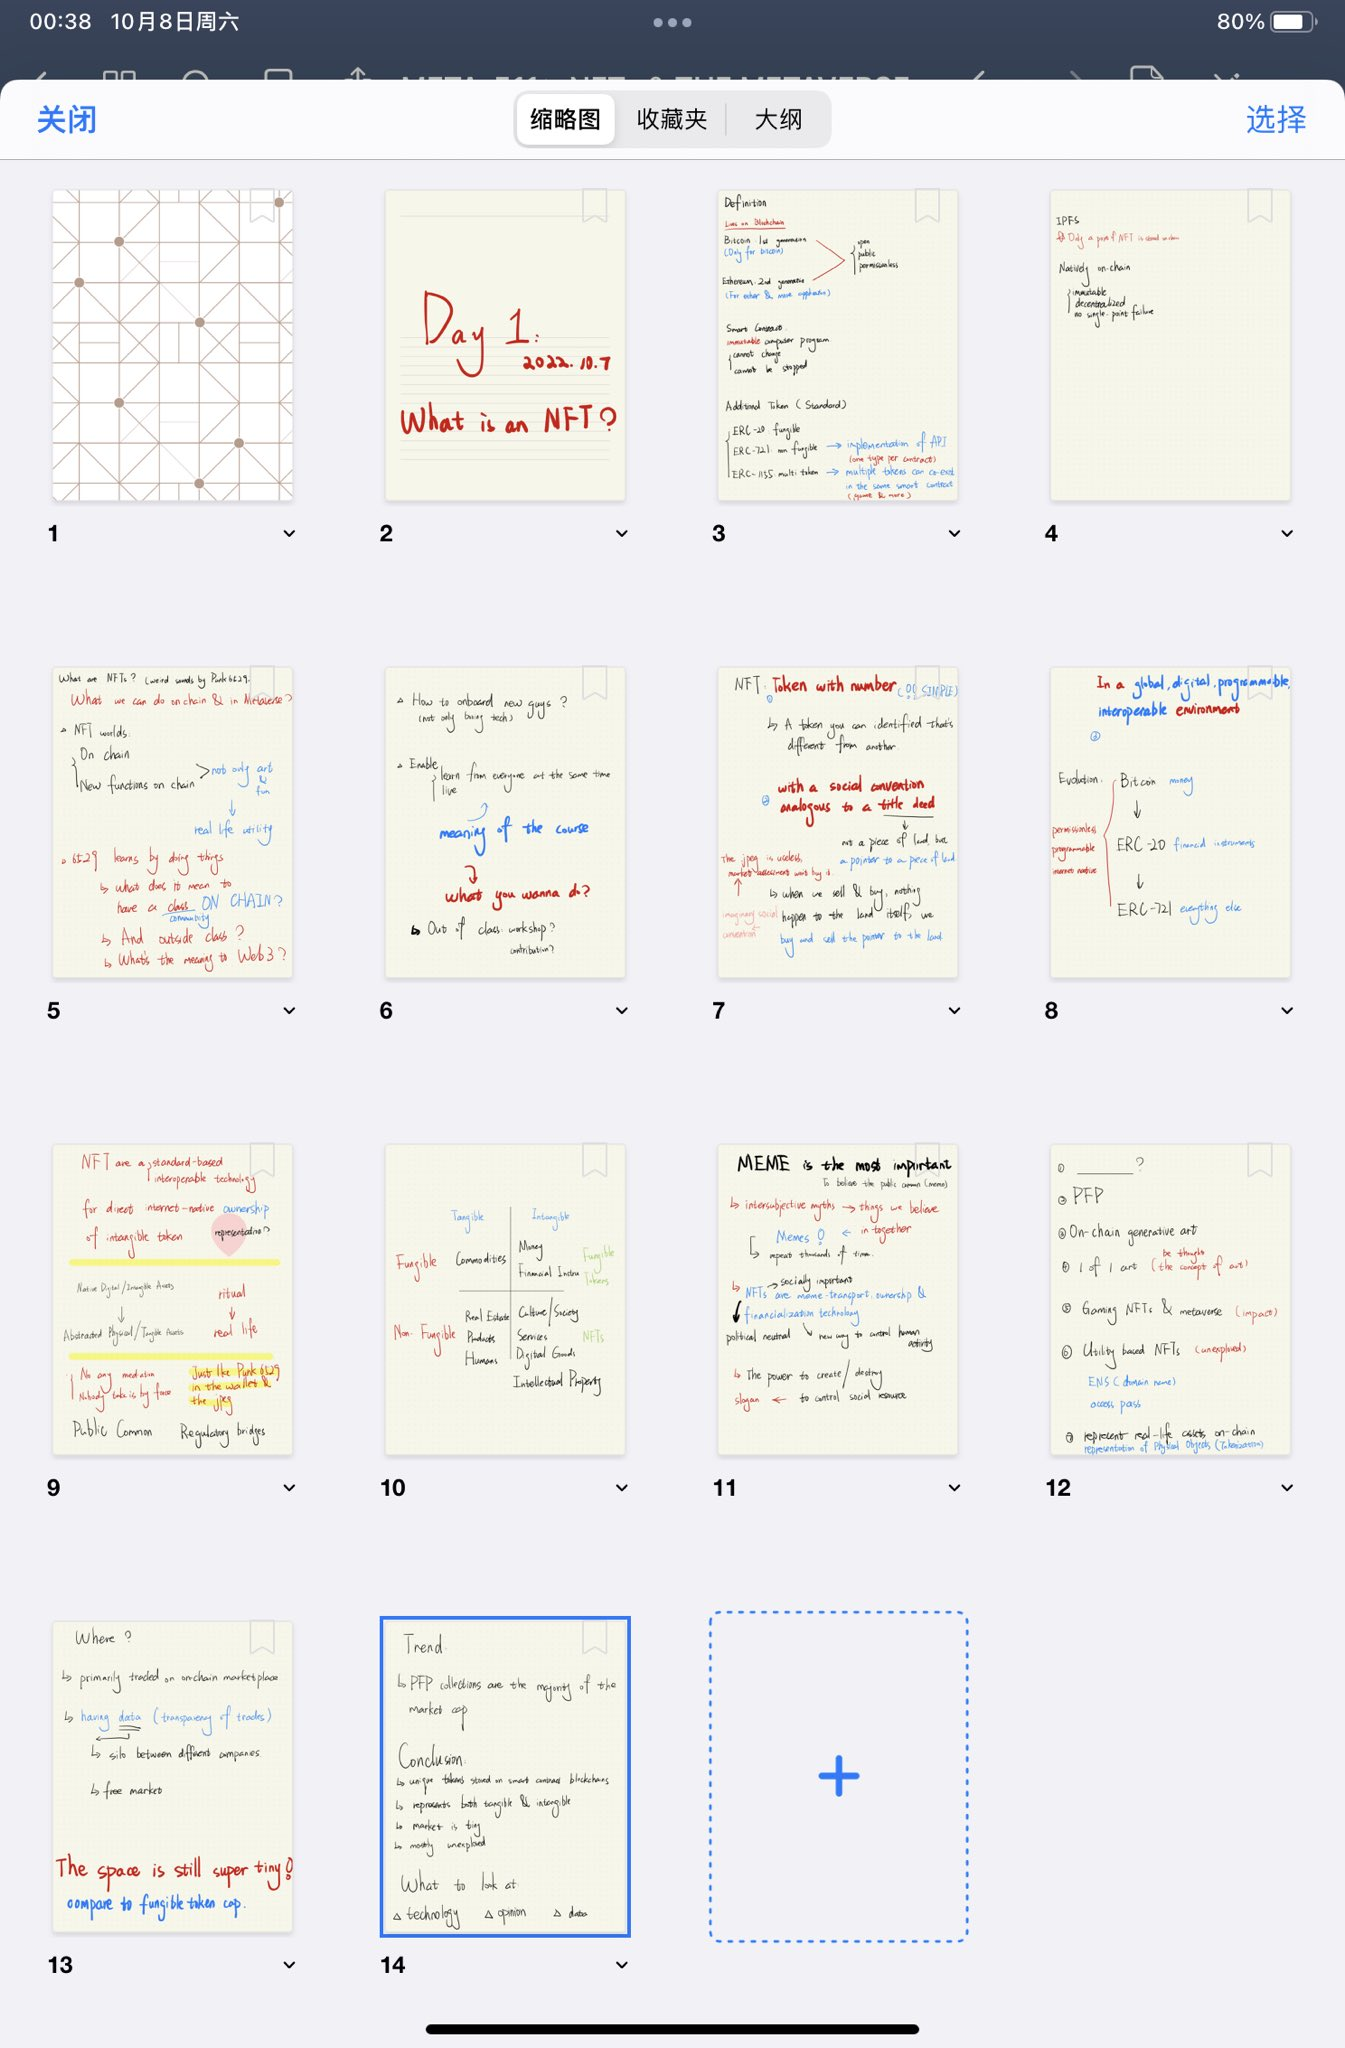 00:38 10月8日周六
80%
关闭
缩略图
收藏夹
大纲
选择
Day 1:
2022.10.7
What is an NFT?
Definition
Lives on Blockchain
Bitcoin 1st generation
(Only for bitcoin)
Ethereum 2nd generation
(For ether & more applications)
open
public
permissionless
Smart Contract.
immutable computer program
cannot change
cannot be stopped
Additional Token (Standard)
ERC-20 fungible
ERC-721 non fungible → implementation of API
(one type per contract)
ERC-1155 multi token → multiple tokens can co-exist
in the same smart contract
(game & more)
IPFS
Only a part of NFT is stored on chain
Natively on-chain
immutable
decentralized
no single-point failure
1
2
3
4
What are NFTs? (weird words by Punk 6529.
What we can do on chain & in Metaverse?
NFT worlds:
On chain
New functions on chain
not only art
&
fun
↓
real life utility
6529 learns by doing things
↳ What does it mean to
have a class ON CHAIN?
community
↳ And outside class?
↳ What's the meaning to Web3?
How to onboard new guys?
(not only being tech)
Enable
learn from everyone at the same time
live
meaning of the course
What you wanna do?
↳ Out of class: workshop?
contribution?
NFT: Token with number (SIMPLE)
↳ A token you can identified that's
different from another.
② with a social convention
analogous to a title deed
↓
not a piece of land, but
a pointer to a piece of land
The jpeg is useless,
↳ when we sell & buy, nothing
imaginary social
convention
happen to the land itself, we
buy and sell the pointer to the land
In a global, digital, programmable,
interoperable environment
③
Evolution.
Bitcoin money
↓
ERC-20 financial instruments
↓
ERC-721 everything else
permissionless
programmable
internet native
5
6
7
8
NFT are a standard-based
interoperable technology
for direct internet-native ownership
of intangible token
representation?
Native Digital/Intangible Assets
↓
Abstracted Physical/Tangible Assets
ritual
↓
real life
No any mediation
Nobody take is by force
Just like Punk 6529
in the wallet &
the jpeg
Public Common
Regulatory bridges
Tangible
Intangible
Fungible
Commodities
Money
Financial Instru
Fungible
Tokens
Non-Fungible
Real Estate
Products
Humans
Culture/Society
Services
Digital Goods
Intellectual Property
NFTs
MEME is the most important
To believe the public common (meme)
↳ intersubjective myths → things we believe
in together
Memes
↳ repeat thousands of time.
→ socially important
↳ NFTs are meme-transport, ownership &
financialization technology
political neutral
new way to control human
activity
↳ The power to create/destroy
slogan ← to control social resource
① ______?
② PFP
③ On-chain generative art
④ 1 of 1 art (the concept of art)
be thought
⑤ Gaming NFTs & metaverse (impact)
⑥ Utility based NFTs (unexplored)
ENS (domain name)
access pass
⑦ represent real-life assets on-chain
representation of Physical Objects (Tokenization)
9
10
11
12
Where?
↳ primarily traded on on-chain marketplace
↳ having data (transparency of trades)
↳ silo between different companies
↳ free market
The space is still super tiny!
compare to fungible token cap.
Trend.
↳ PFP collections are the majority of the
market cap
Conclusion:
↳ unique tokens stored on smart contract blockchains
↳ represents both tangible & intangible
↳ market is tiny
↳ mostly unexplored
What to look at
△ technology △ opinion △ data
13
14